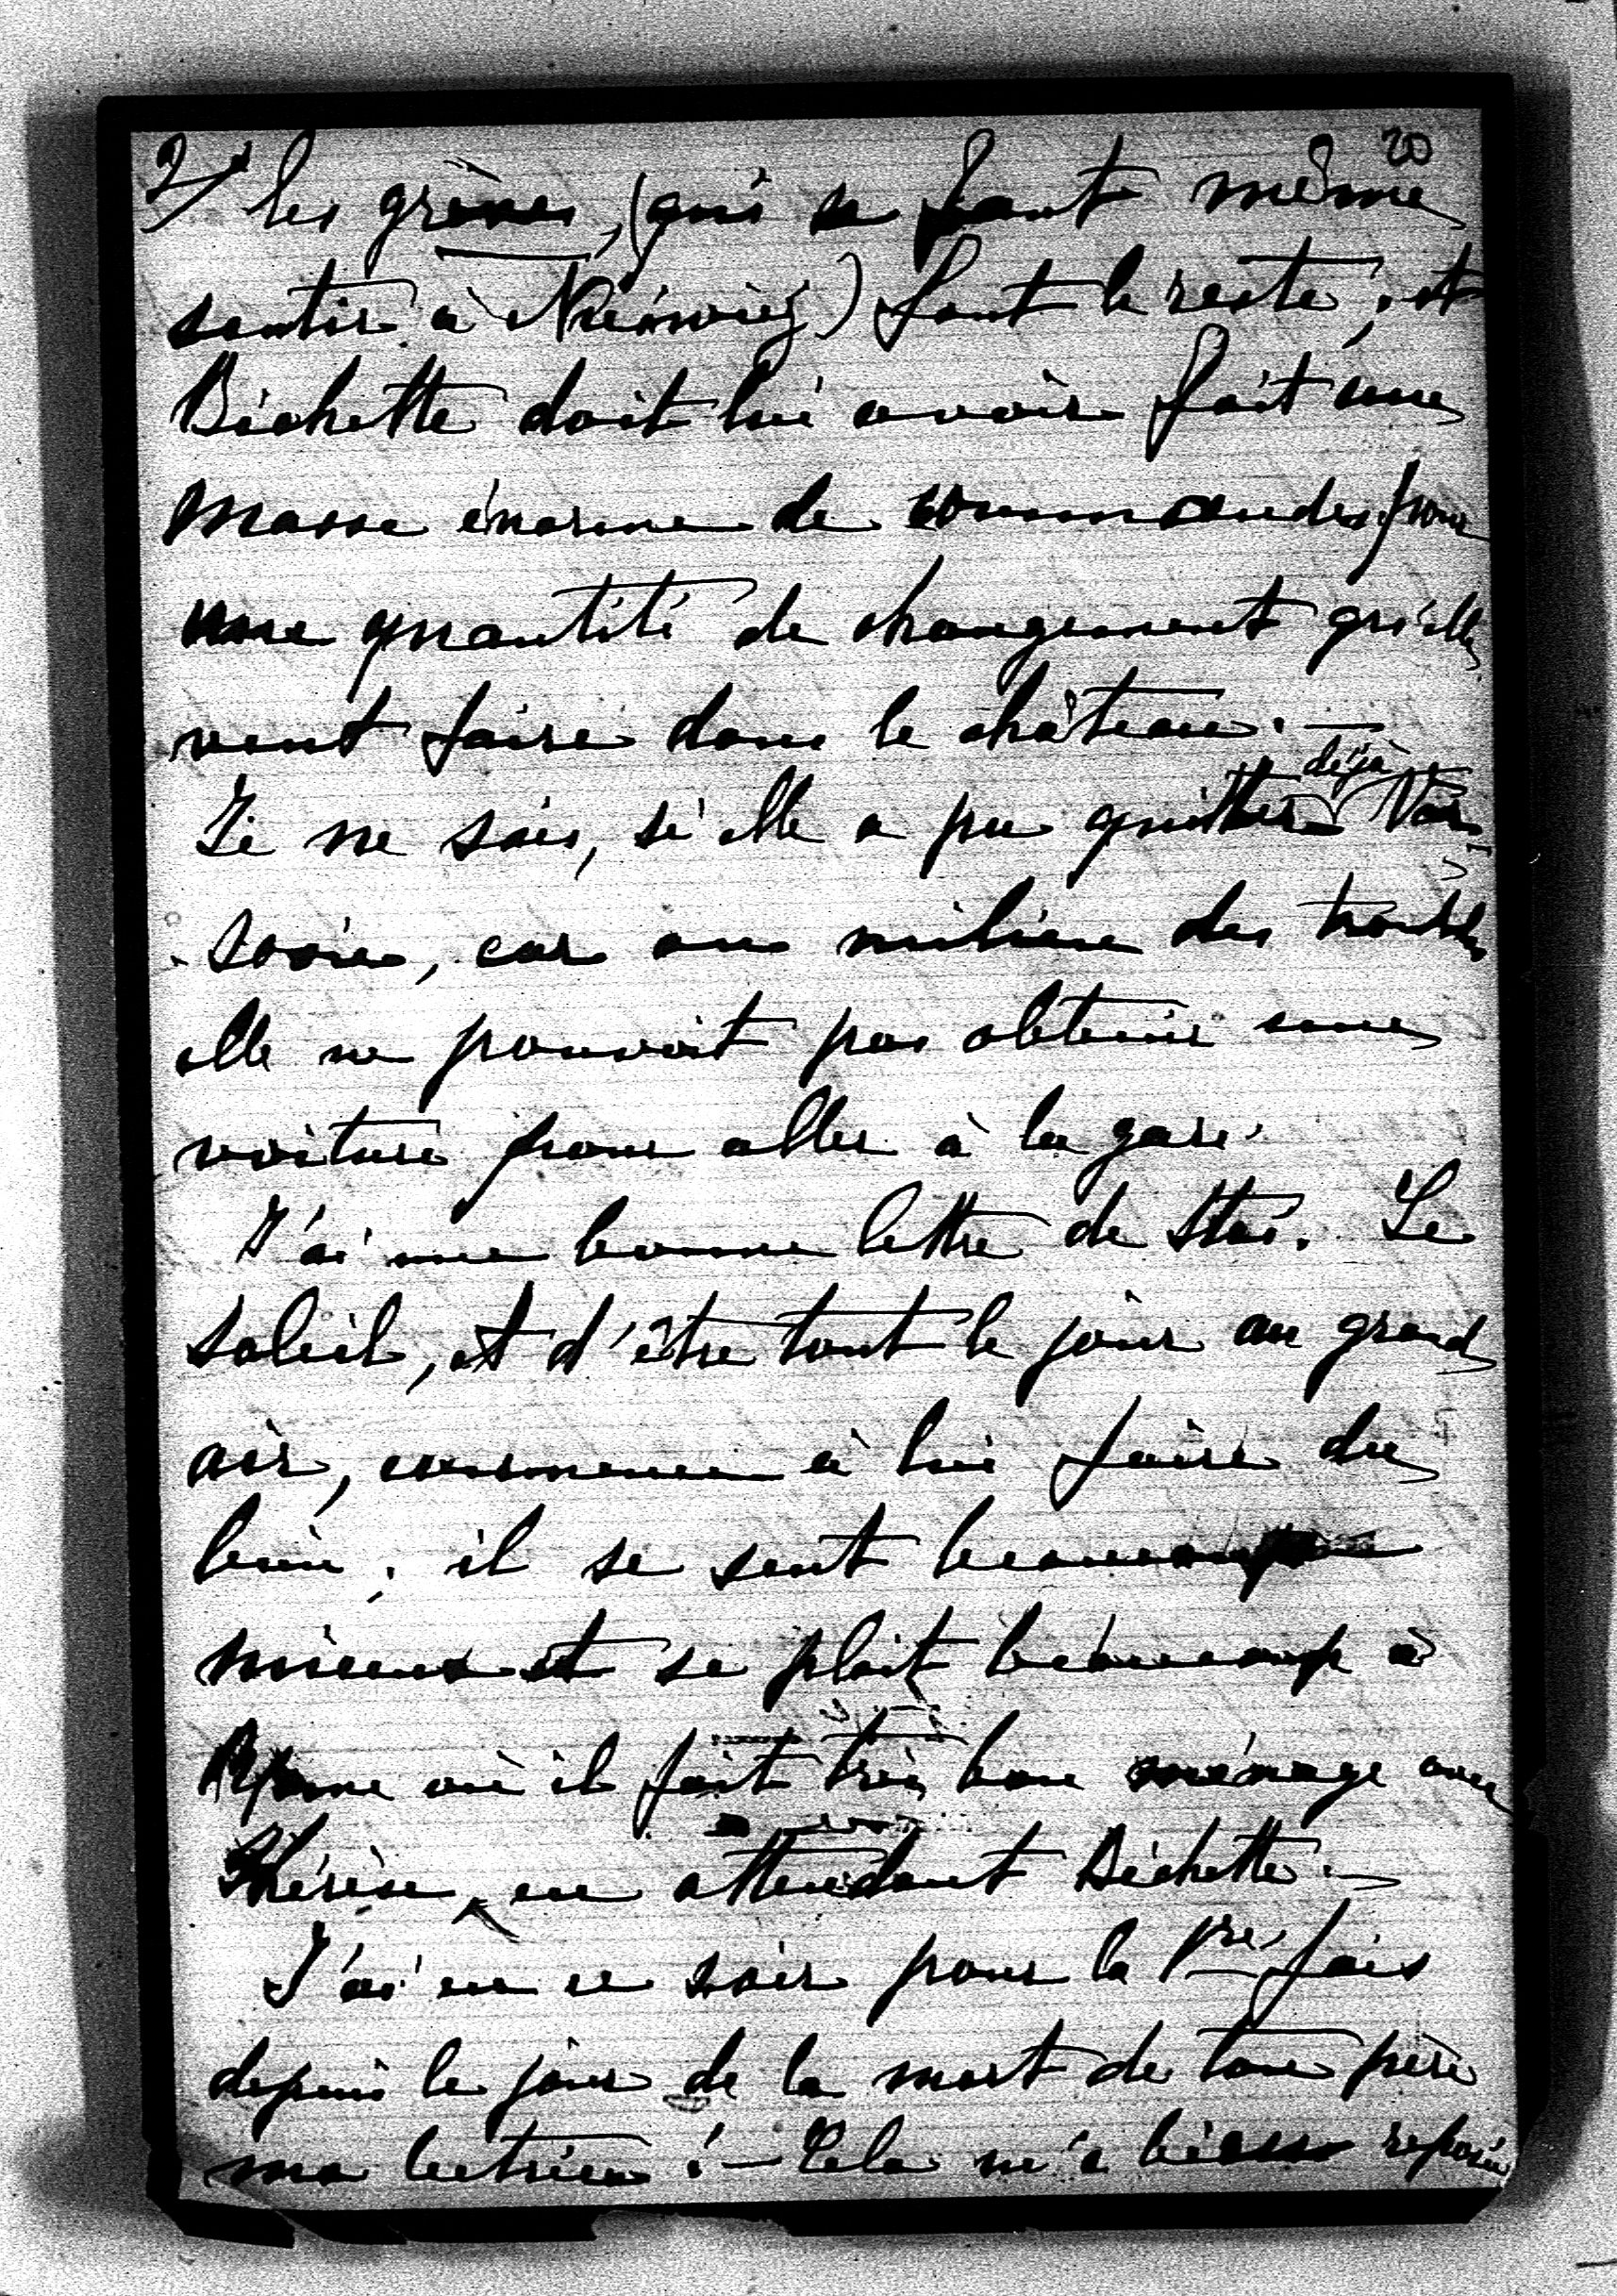 20
2/ les grèves, (qui se font même
sentir à Nieśwież) font le reste; et
Bichette doit lui avoir fait une
masse énorme de commandes pour
une quantité de changement qu'elle
veut faire dans le château. —
déjà
Je ne sais, si elle a pu quitter Var-
sovie, car au milieu des troubles
elle ne pouvait pas obtenir une
voiture pour aller à la gare.
J'ai une bonne lettre de Stas. Le
soleil, et d'être tout le jour au grand
air, commence à lui faire du
bien; il se sent beaucoup
mieux et se plait beaucoup à
Rome où il fait très bon ménage avec
Thérèse, en attendant Bichette. —
J'ai eu ce soir pour la 1re fois
depuis le jour de la mort de ton père
ma lectrice! — Cela m'a bien reposée